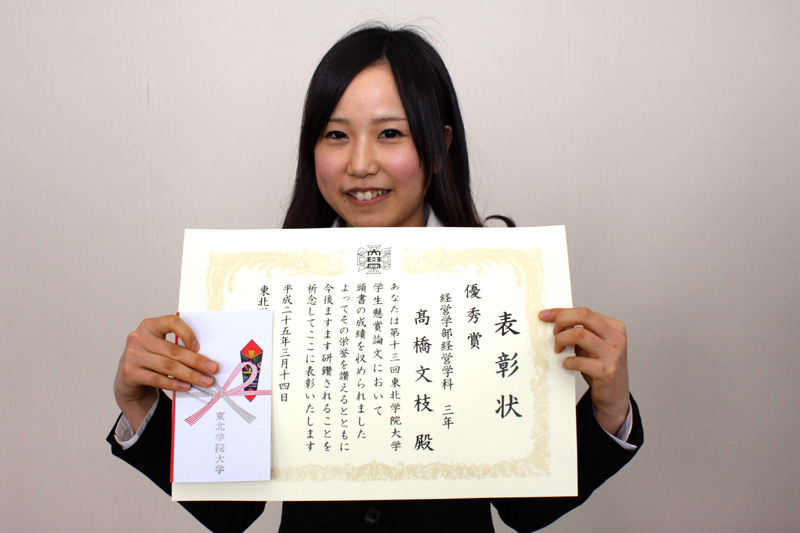 表彰状
優秀賞
経営学部経営学科　三年
髙橋文枝殿
あなたは第十三回東北学院大学
学生懸賞論文において
頭書の成績を収められました
よってその栄誉を讃えるとともに
今後ますます研鑽されることを
祈念してここに表彰いたします
平成二十五年三月十四日
東北
東北学院大学